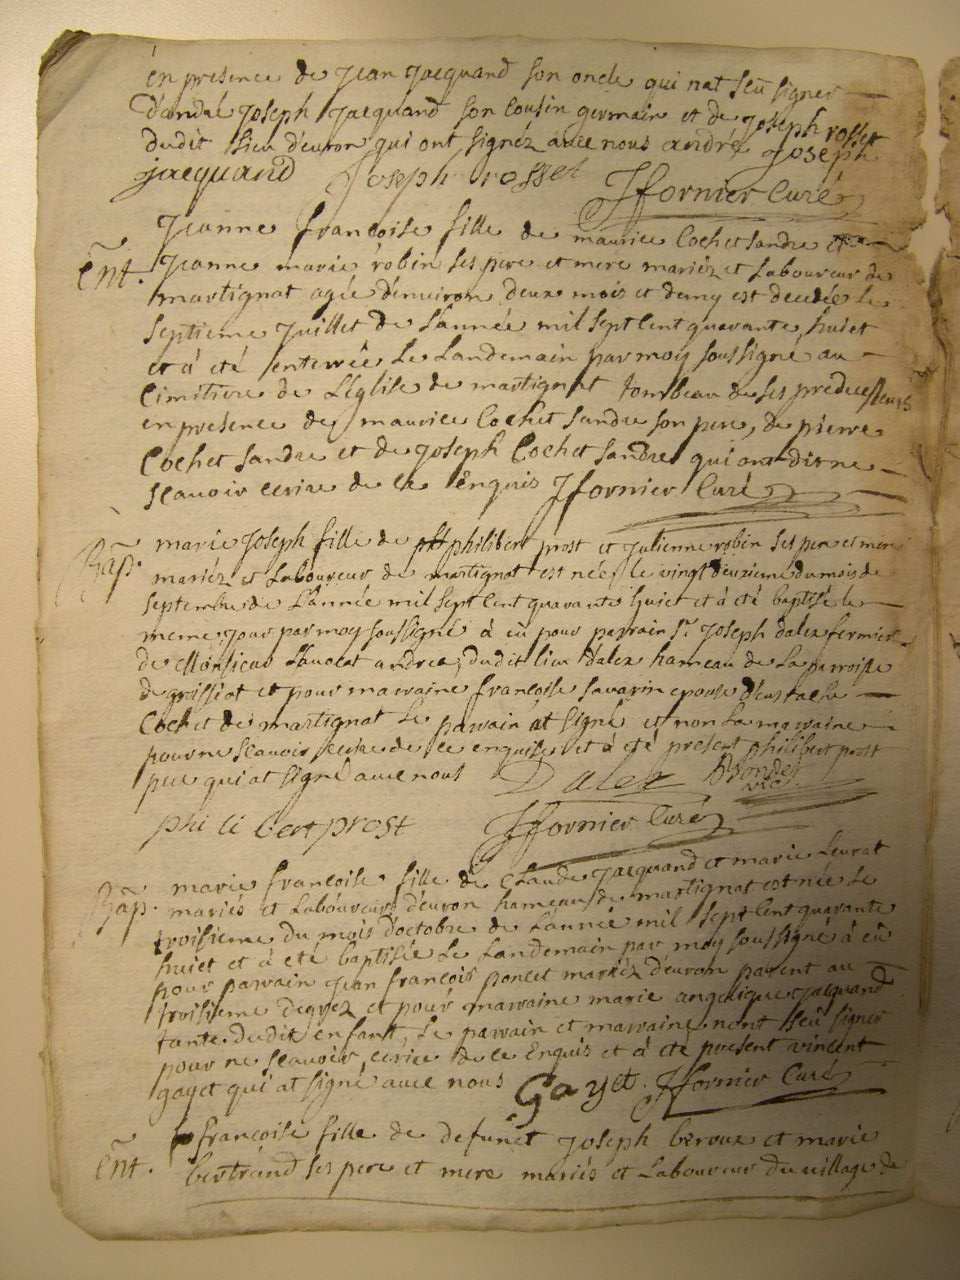 en presence de Jean Jacquand son oncle qui nat seu signer
d'andré Joseph Jacquand son Cousin germain et de Joseph rosset
dudit lieu d'euron qui ont signéz avec nous andré Joseph
jacquand Joseph rosset Jfornier Curé
Jeanne françoise fille de maurice Cochet sandre et
Ent. Jeanne marie robin ses pere et mere mariéz et Laboureur de
martignat agée d'environ deux mois et demy est decedée le
septieme Juillet de L'année mil sept Cent quarante huict
et à été enterrée Le Landemain par moy soussigné au
Cimitiere de L'église de martignat tombeau de ses predecesseurs
en présence de maurice Cochet sandre son pere, de pierre
Cochet sandre et de Joseph Cochet sandre qui ont dit ne
scavoir ecrire de ce Enquis Jfornier Curé
marie Joseph fille de philibert prost et Julienne robin ses pere et mere
Bap. mariéz et Laboureur de martignat est née le vingt deuxieme du mois de
septembre de L'année mil sept Cent quarante huict et à été baptisée le
meme jour par moy soussigné à eü pour parrain Sr. Joseph dalex fermier
de Monsieur L'avocat andrea, dudit lieu d'alex hameau de La parroisse
de grissiat et pour marraine françoise savarin epouse d'eustache
Cochet de martignat Le parrain at signé et non La marraine
pour ne scavoir ecrire de ce enquise et à été present philibert prost
pere qui at signé avec nous Dalex Blondet vic.
philibert prost Jfornier Curé
marie françoise fille de Claude Jacquand et marie Levrat
Bap. mariés et Laboureurs d'euron hameau de martignat est née Le
troisieme du mois d'octobre de L'année mil sept Cent quarante
huict et à eté baptisée Le Landemain par moy soussigné à eü
pour parrain Jean françois poncet mariéz d'euron parent au
troisieme degrez et pour marraine marie angelique Jacquand
tante dudit enfant, Le parrain et marraine n'ont seü signer
pour ne scavoir ecrire de ce Enquis et à eté present vincent
gayet qui at signé avec nous Gayet. Jfornier Curé
françoise fille de defunct Joseph beroux et marie
Ent. bertrand ses pere et mere mariés et Laboureur du village de